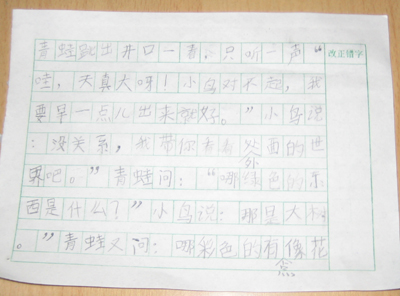 青蛙跳出井口一看，只听一声“ 改正错字
哇，天真大呀！小鸟对不起，我
要早一点儿出来就好。”小鸟说
：没关系，我带你看看外面的世
界吧。”青蛙问：“哪绿色的东
西是什么？”小鸟说：那是大树
。”青蛙又问：哪彩色的有像花